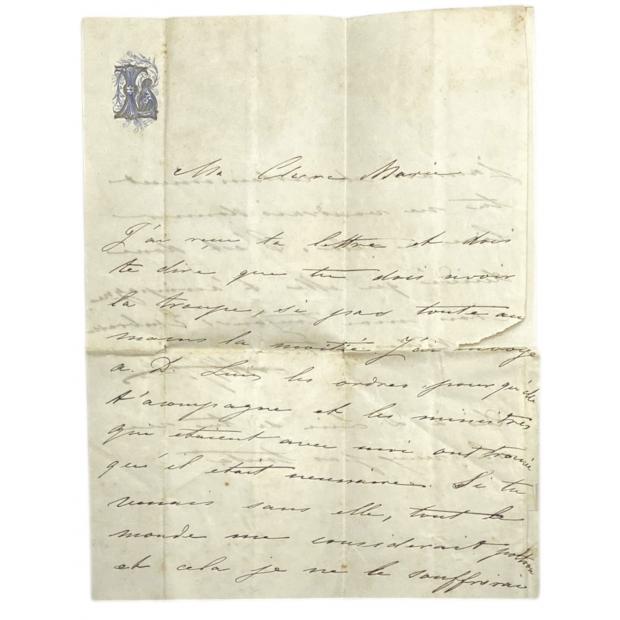 Ma Chere Marie
J'ai reçue ta lettre et dois
te dire que tu dois avoir
la troupe, si pas toute au
moins la moitié. J'ai envoyé
a D. Luis les ordres pour qu'elle
t'acompagne et les ministres
qui etaient avec moi ont trouvé
qu'il etait necessaire. Si tu
venais sans elle, tout le
monde me considerait poltron
et cela je ne le souffrirai